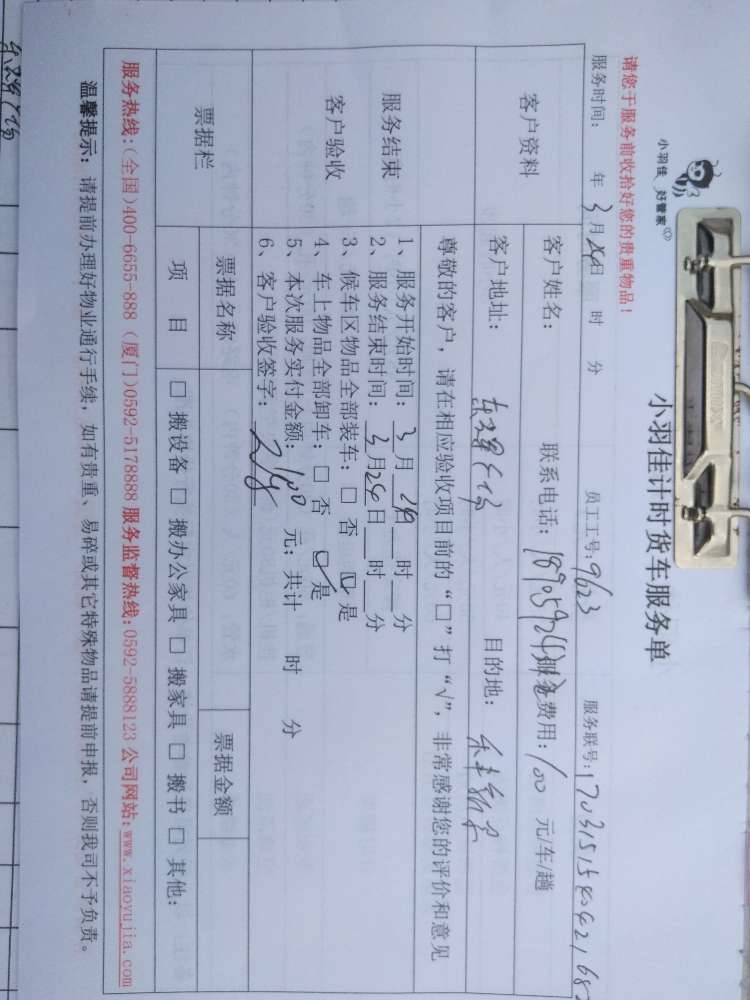 小羽佳 好管家
小羽佳计时货车服务单
请您于服务前收拾好您的贵重物品！
服务时间： 年 3月24日 时 分 员工工号：9623 服务联号：
客户资料
客户姓名： 联系电话： 费用：100 元/车/趟
客户地址： 目的地：
尊敬的客户，请在相应验收项目前的“□”打“√”，非常感谢您的评价和意见
服务结束
客户验收
1、服务开始时间：3月24日 时 分
2、服务结束时间：3月24日 时 分
3、候车区物品全部装车：□ 否 ☑ 是
4、车上物品全部卸车：□ 否 ☑ 是
5、本次服务实付金额：100 元；共计 时 分
6、客户验收签字：
票据栏
票据名称 票据金额
项 目 □ 搬设备 □ 搬办公家具 □ 搬家具 □ 搬书 □ 其他：
服务热线：（全国）400-6655-888（厦门）0592-5178888 服务监督热线：0592-5888123 公司网站：www.xiaoyujia.com
温馨提示：请提前办理好物业通行手续，如有贵重、易碎或其它特殊物品请提前申报，否则我司不予负责。